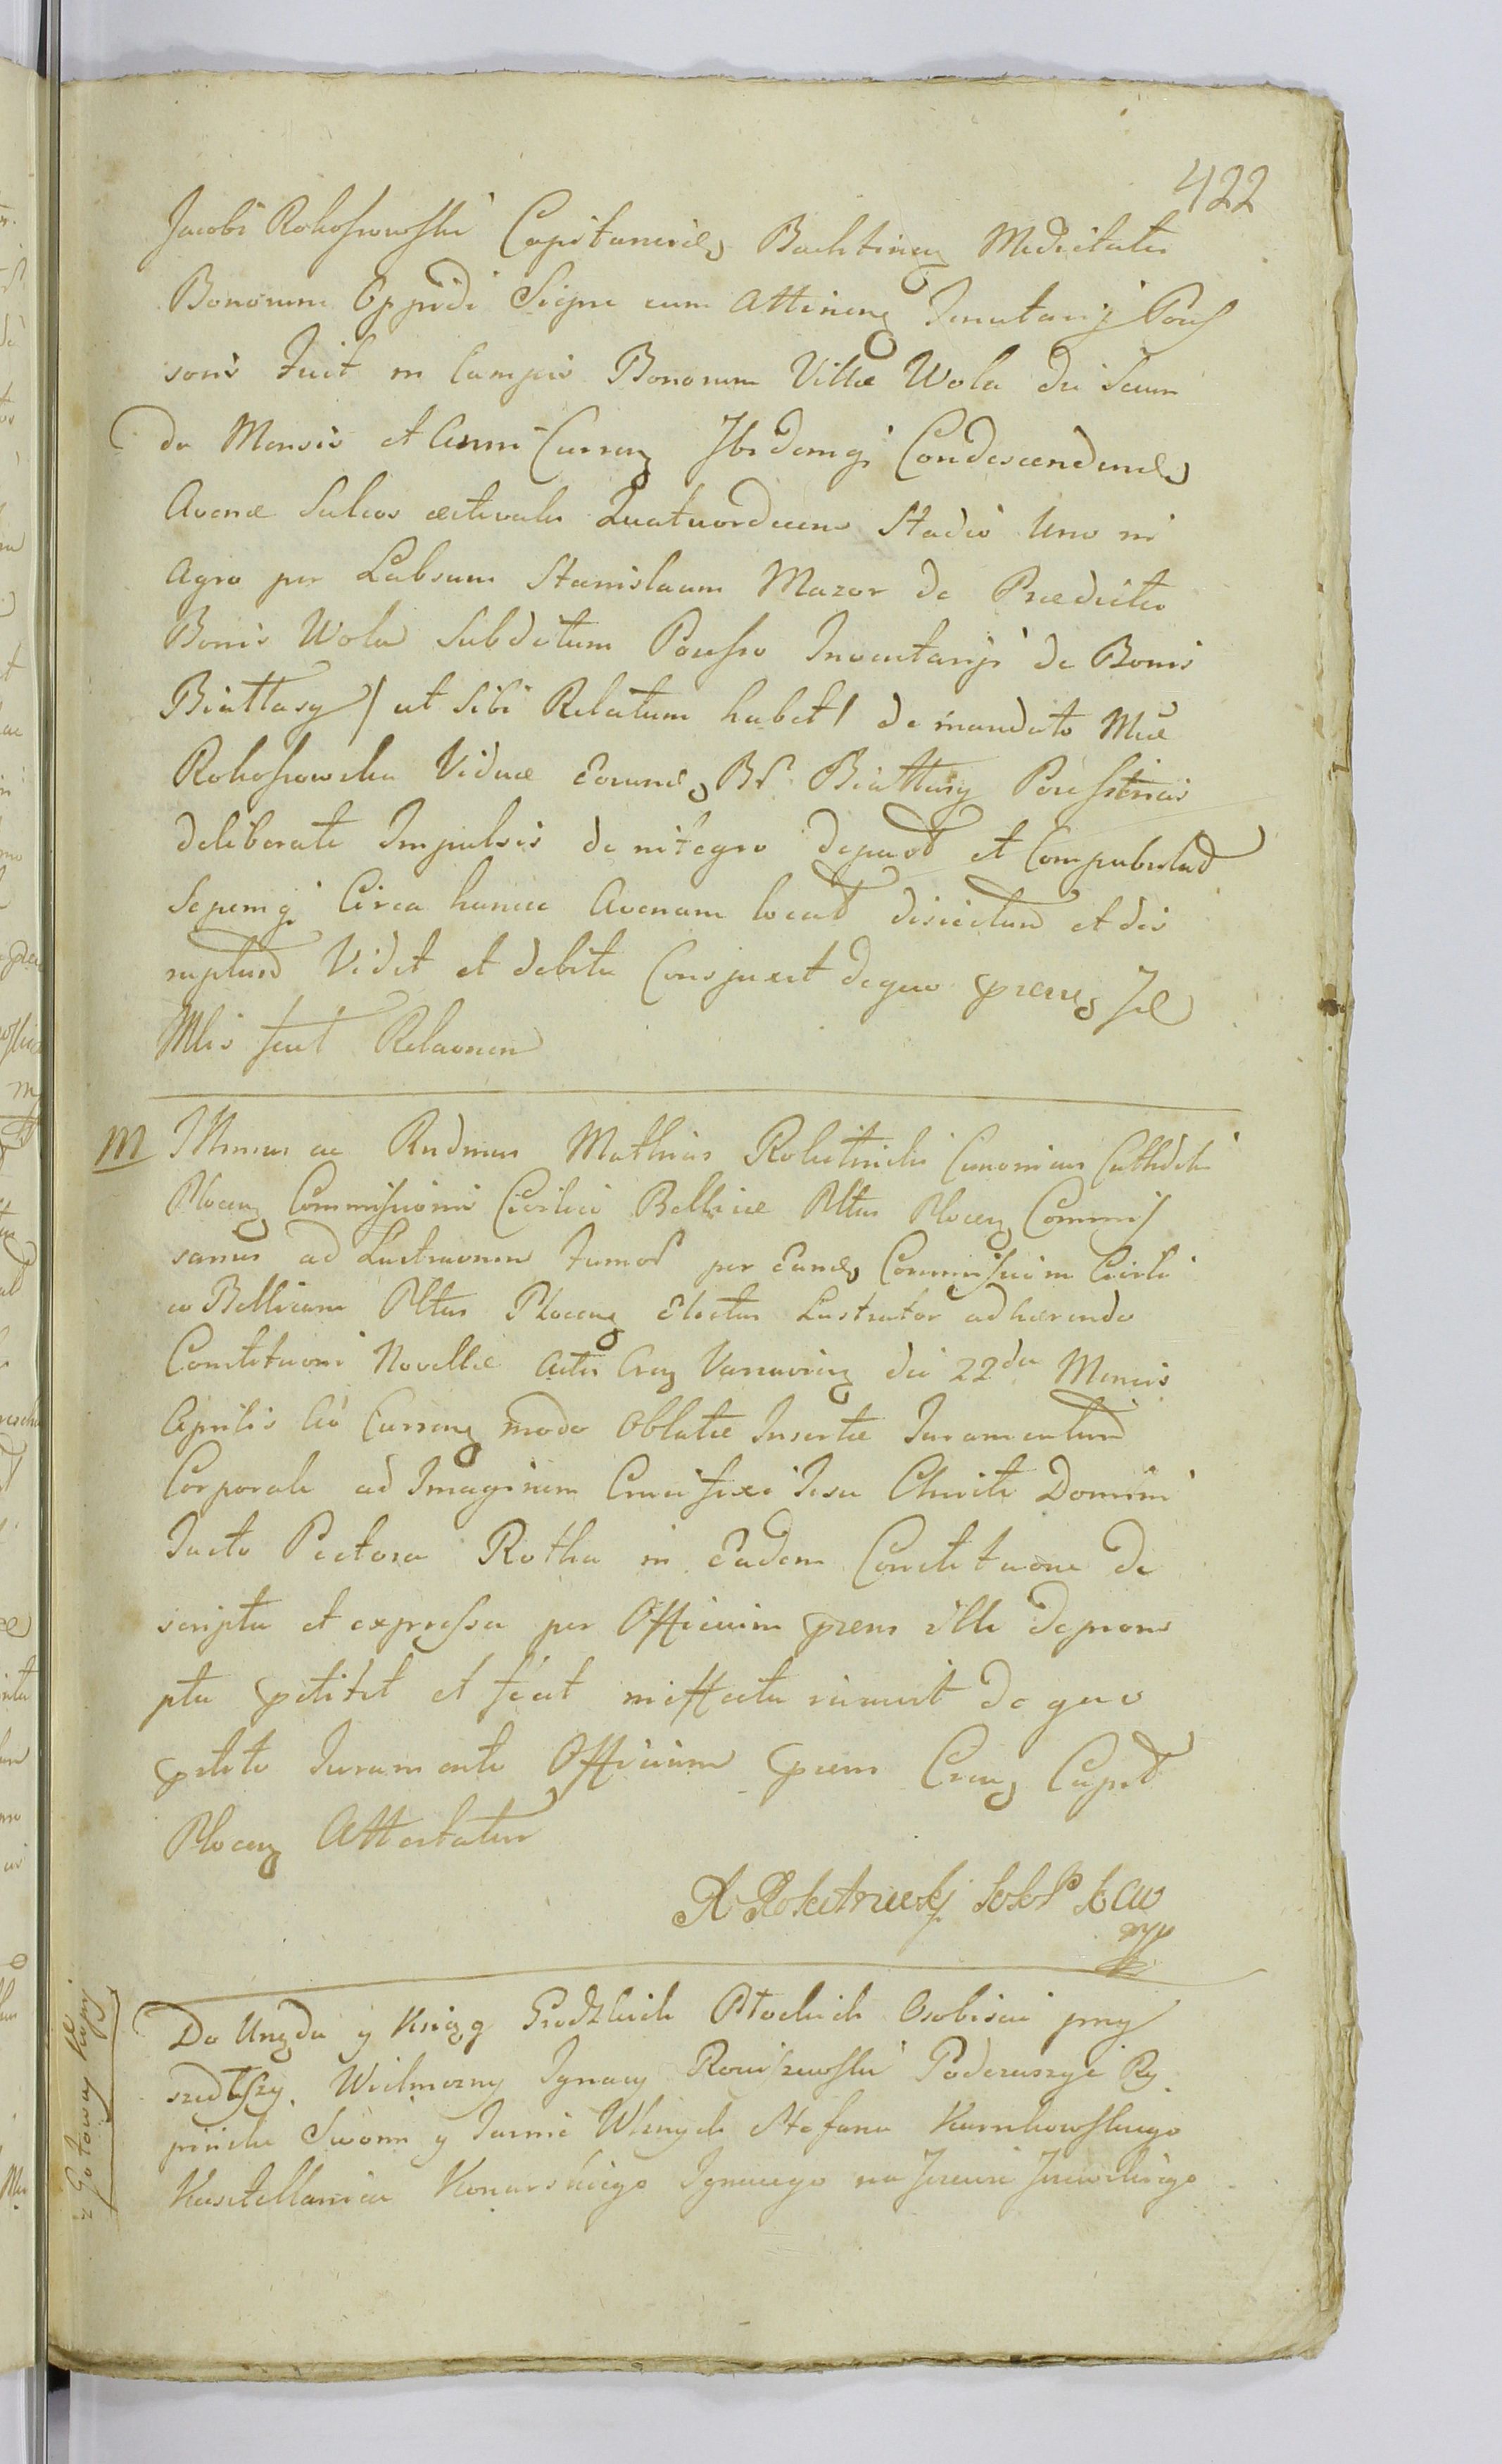 422
Jacobi Rokossowski Capitaneid Bachtinen Medietatis
Bonorum Oppidi Sierpc cum Attinen Tenutarij Poss
soris fuit in Campis Bonorum Villæ Wola die Secun
da Mensis et Anni Curren Ibidemq Condescendend
Avenæ Sulcos æstivales Quatuordecem Stadio Uno in
Agro per Labsum Stanislaum Mazor de Prædictis
Bonis Wola Subditum Possesso Inventarij de Bonis
Biattasy / ut Sibi Relatum habet / de mandato Mcæ
Rokossowska Viduæ Eorund Br Biattasy Possessricis
deliberate Impulsis de integro depast et Compabulat
Sepemq Circa hancce Avenam locat disiectum et dis
ruptum Vidit et debite Conspexit dequo præns Je
Mlis fecit Relaonem
M Illmus ac Rndmus Mathias Rokitnicki Canonicus Cathedlis
Plocen Commissionis Civilico Bellicæ Pltus Plocen Commis
sarius ad Lustraonem fumor per Eand Commissioem Civili
co Bellicam Pltus Plocen Electus Lustrator adhærendo
Constituoni Novellæ Actis Cren Varsavien die 22da Mensis
Aprilis Ao Curren modo Oblatæ Insertæ Juramentum
Corporale ad Imaginem Crucifixi Jesu Christi Domini
Tacto Pectore Rotha in Eadem Constituone de
scripta et expressa per Officium præns illi deprom
pta petitit et fecit in effectu iuravit de quo
petito Juramento Officium præns Cren Capit
Plocen Attestatur
X Rokitnicki KKP KCW
mpp
z Gotowey Kopij
Do Urzędu y Ksiąg Grodzkich Płockich Osobiście przy
szedłszy Wielmozny Ignacy Rościszewski Podczaszyc Ry
piński Swoim y Jaśnie Wlznych Stefana Karnkowskiego
Kasztellanica Konarskiego Ignacego na Jeżewie Jeżewskiego